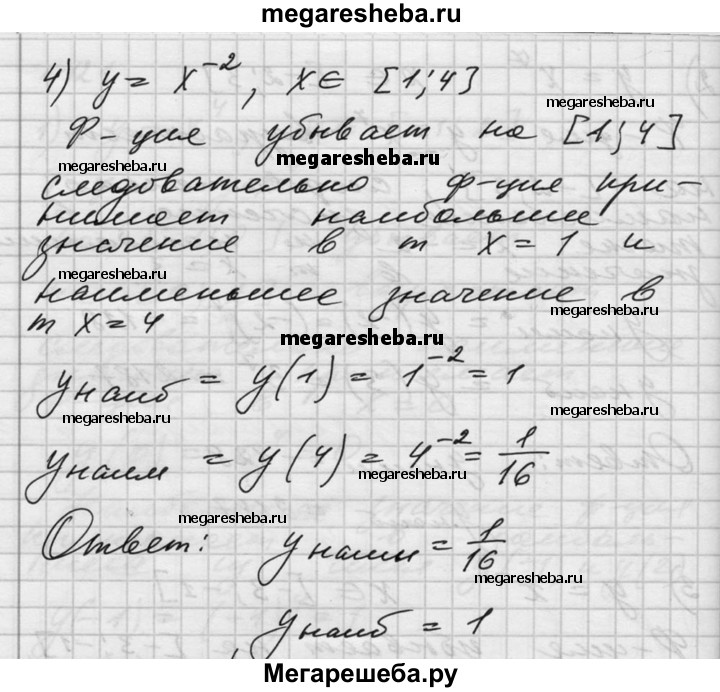 megaresheba.ru
4) y = x⁻², x ∈ [1;4]
megaresheba.ru
Ф-ция убывает на [1;4]
megaresheba.ru
megaresheba.ru
следовательно ф-ция при-
нимает наибольшее
megaresheba.ru
значение в т x = 1 и
megaresheba.ru
наименьшее значение в
megaresheba.ru
т x = 4
megaresheba.ru
yнаиб = y(1) = 1⁻² = 1
megaresheba.ru
megaresheba.ru
yнаим = y(4) = 4⁻² = 1/16
megaresheba.ru
megaresheba.ru
Ответ: yнаим = 1/16
megaresheba.ru
yнаиб = 1
Мегарешеба.ру